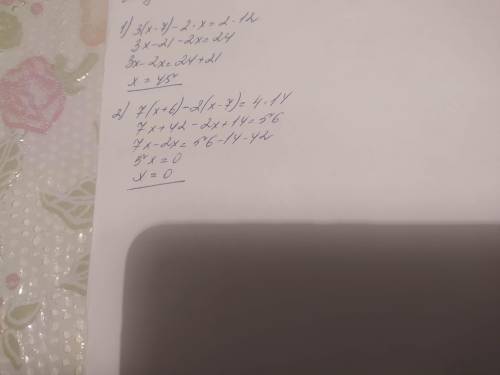 1) 3(x-7)-2·x=2·12
3x-21-2x=24
3x-2x=24+21
x=45
2) 7(x+6)-2(x-7)=4·14
7x+42-2x+14=56
7x-2x=56-14-42
5x=0
x=0